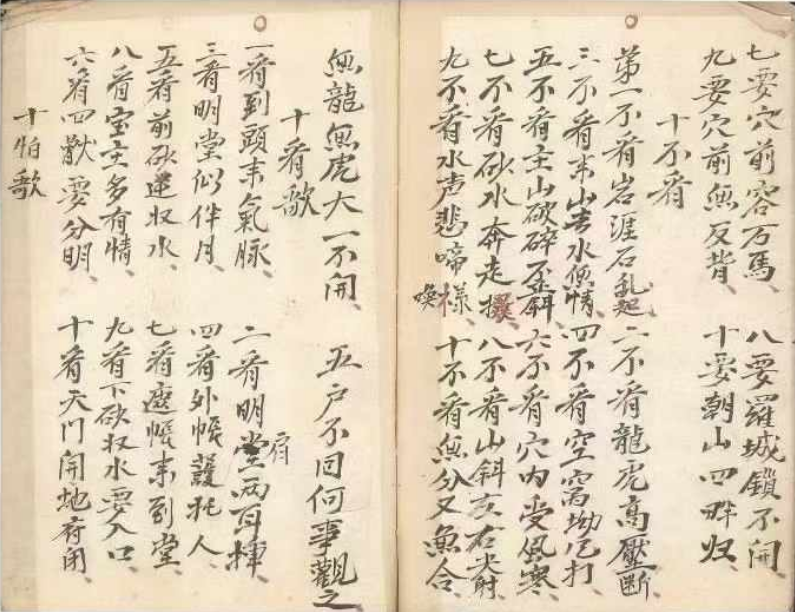 七要穴前容万馬、 八要羅城鎖不開、
九要穴前無反背、 十要朝山四畔归、
十不看
第一不看岩涯石乱起、 二不看龍虎高壓断、
三不看来山去水無情、 四不看空窩坳风打、
五不看主山破碎歪斜、 六不看穴内受風寒、
七不看砂水奔走 八不看山斜友右尖射、
九不看水声悲啼樣、 十不看無分又無合、
唤
無龍無虎大一不開、 五户不回何事觀之
十看歌
一看到頭来氣脉、 二看明堂两耳揮
三看明堂似伴月、 四看外帳護托人、
五看前砂逆収水、 七看遮帳来到堂、
八看宝主多有情、 九看下砂収水要入口、
六看四獣要分明、 十看天门開地府闭、
十怕歌